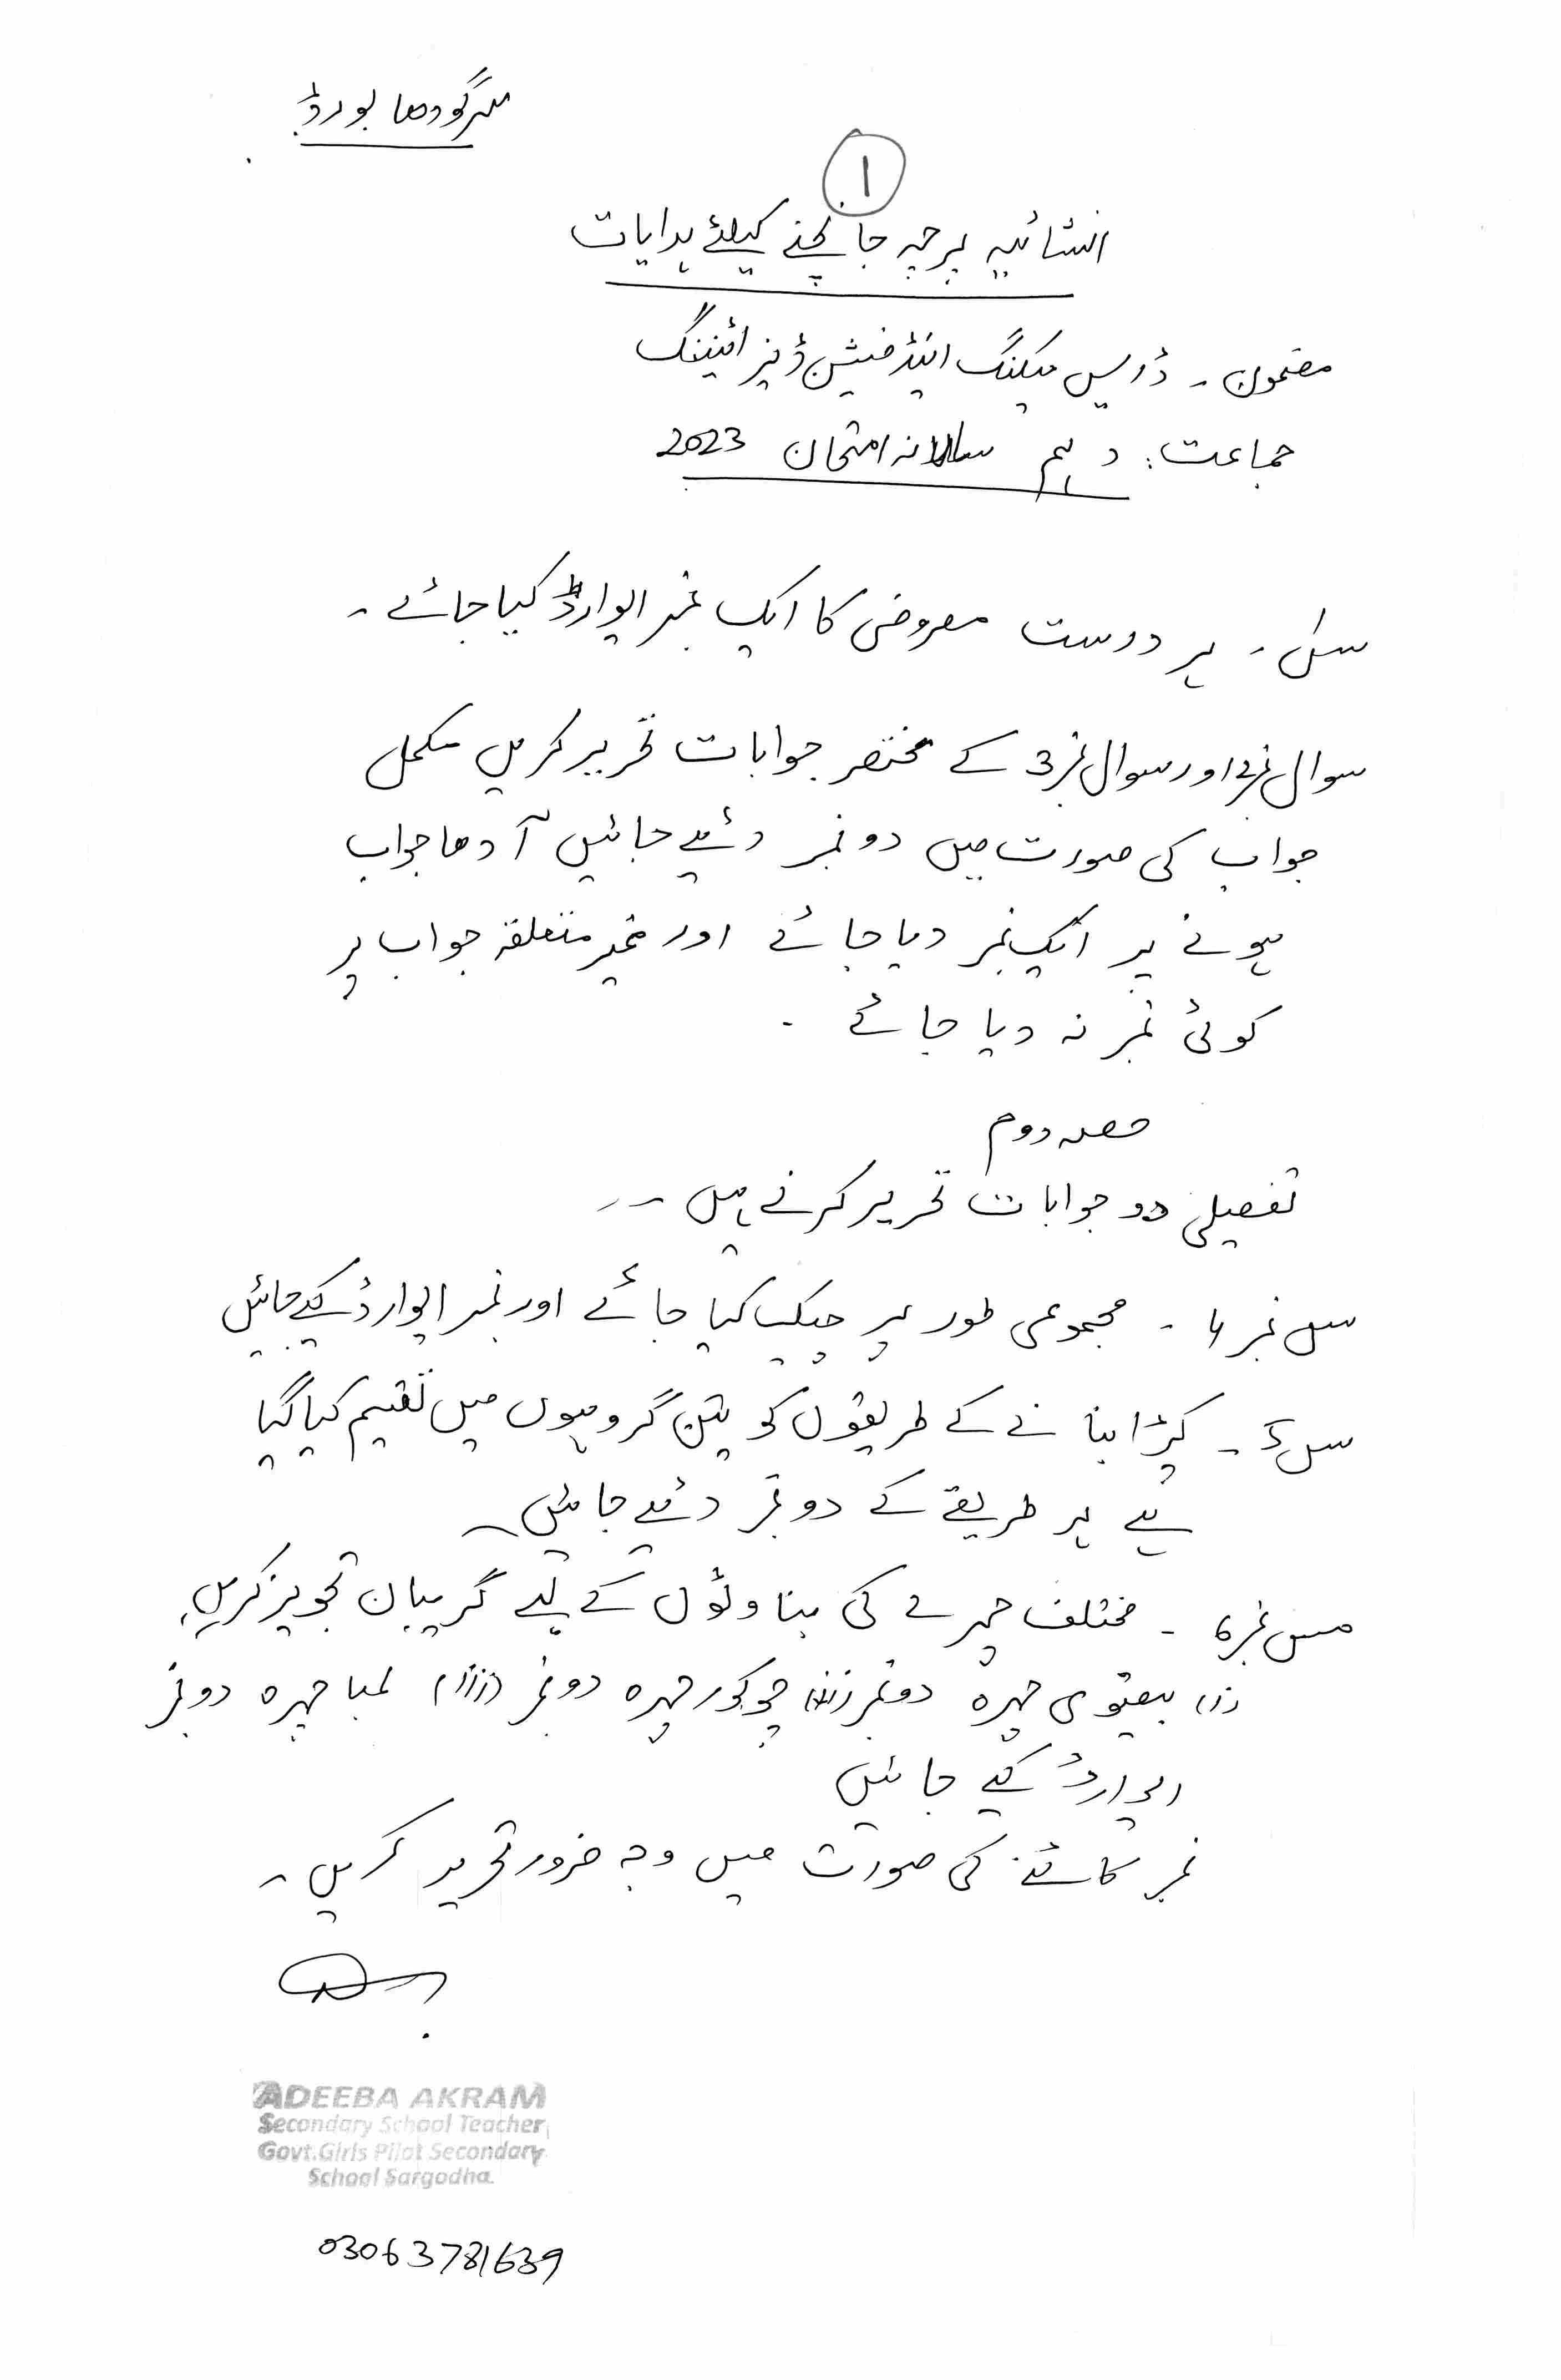 سرگودھا بورڈ
۱
انشائیہ پرچہ جانچنے کیلئے ہدایات
مضمون ۔ ڈریس میکنگ اینڈ فیشن ڈیزائیننگ
جماعت : دہم سالانہ امتحان 2023
س۱ ۔ ہر درست معروضی کا ایک نمبر ایوارڈ کیا جائے ۔
سوال نمبر2 اور سوال نمبر3 کے مختصر جوابات تحریر کریں مکمل
جواب کی صورت میں دو نمبر دئیے جائیں آدھا جواب
ہونے پر ایک نمبر دیا جائے اور غیر متعلقہ جواب پر
کوئی نمبر نہ دیا جائے ۔
حصہ دوم
تفصیلی دو جوابات تحریر کرنے ہیں ۔۔
س نمبر ۴ ۔ مجموعی طور پر چیک کیا جائے اور نمبر ایوارڈ کیے جائیں
س ۵ ۔ کپڑا بنانے کے طریقوں کو تین گروہوں میں تقسیم کیا گیا
ہے ہر طریقے کے دو نمبر دئیے جائیں ۔
س نمبر 6 ۔ مختلف چہرے کی بناوٹوں کے لیے گریبان تجویز کریں۔
(i) بیضوی چہرہ دو نمبر (ii) چوکور چہرہ دو نمبر (iii) لمبا چہرہ دو نمبر
ایوارڈ کیے جائیں
نمبر کاٹنے کی صورت میں وجہ ضرور تحریر کریں ۔
ADEEBA AKRAM
Secondary School Teacher
Govt.Girls Pilot Secondary
School Sargodha.
03063781639